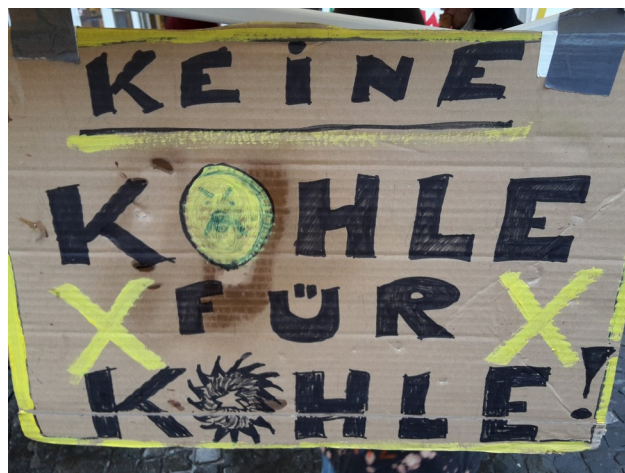 KEINE
KOHLE
X FÜR X
KOHLE!